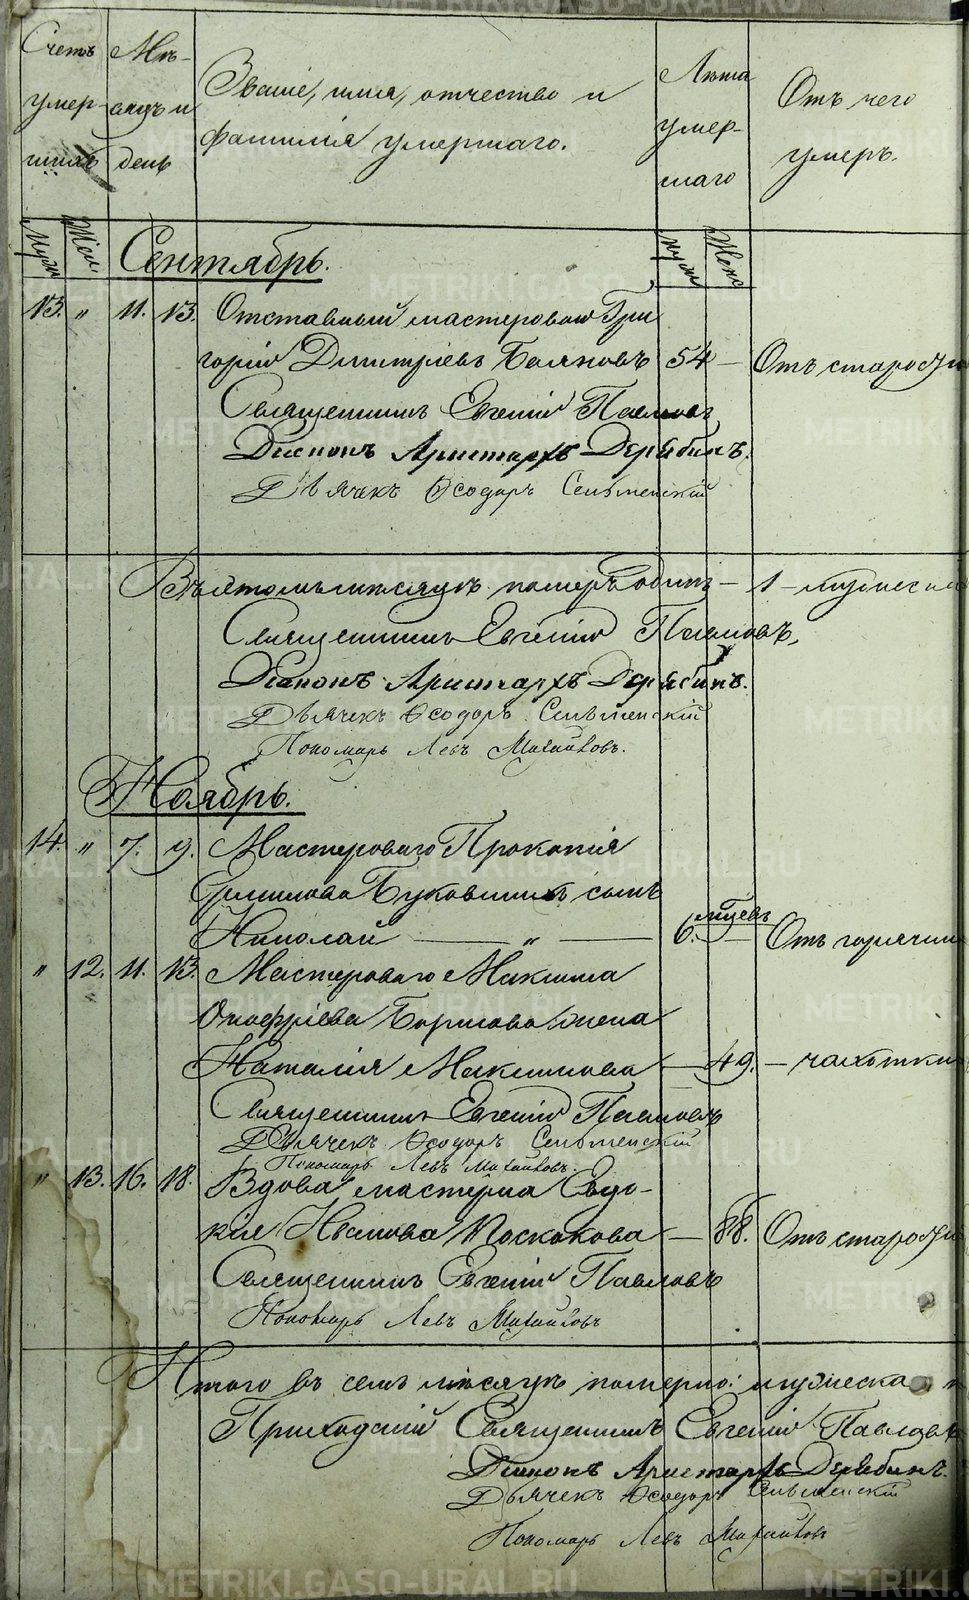 Счетъ умер- шихъ
Мѣ- сяцъ и день
Званіе, имя, отчество и
фамилія умершаго.
Лѣта умер- шаго
Отъ чего умеръ.
Муж Жен
Сентябрь.
Муж Женс
13. " 11. 13. Отставный мастеровой Гри
горій Дмитріевъ 54 — Отъ старости
Священникъ Евгеній Павловъ
Діаконъ Аристархъ Дерябинъ.
Дьячекъ Ѳеодоръ
Въ этомъ мѣсяцѣ померъ одинъ — 1 —
Священникъ Евгеній Павловъ,
Діаконъ Аристархъ Дерябинъ.
Дьячекъ Ѳеодоръ
Пономарь Левъ
Ноябрь.
14. " 7. 9. Мастероваго Прокопія
сынъ
Николай — " — 6. мцевъ — Отъ горячки
" 12. 11. 13. Мастероваго Максима
Онофріева Борисова жена
Наталія Максимова — 49. — чахотки
Священникъ Евгеній Павловъ
Дьячекъ Ѳеодоръ
Пономарь Левъ
" 13. 16. 18. Вдова мастерша Евдо-
кія Иванова Москокова — 88. Отъ старости
Священникъ Евгеній Павловъ
Пономарь Левъ
Итого въ семъ мѣсяцѣ померло: мужеска
Приходскій Священникъ Евгеній Павловъ
Діаконъ Аристархъ Дерябинъ.
Дьячекъ Ѳеодоръ
Пономарь Левъ
METRIKI.GASO-URAL.RU